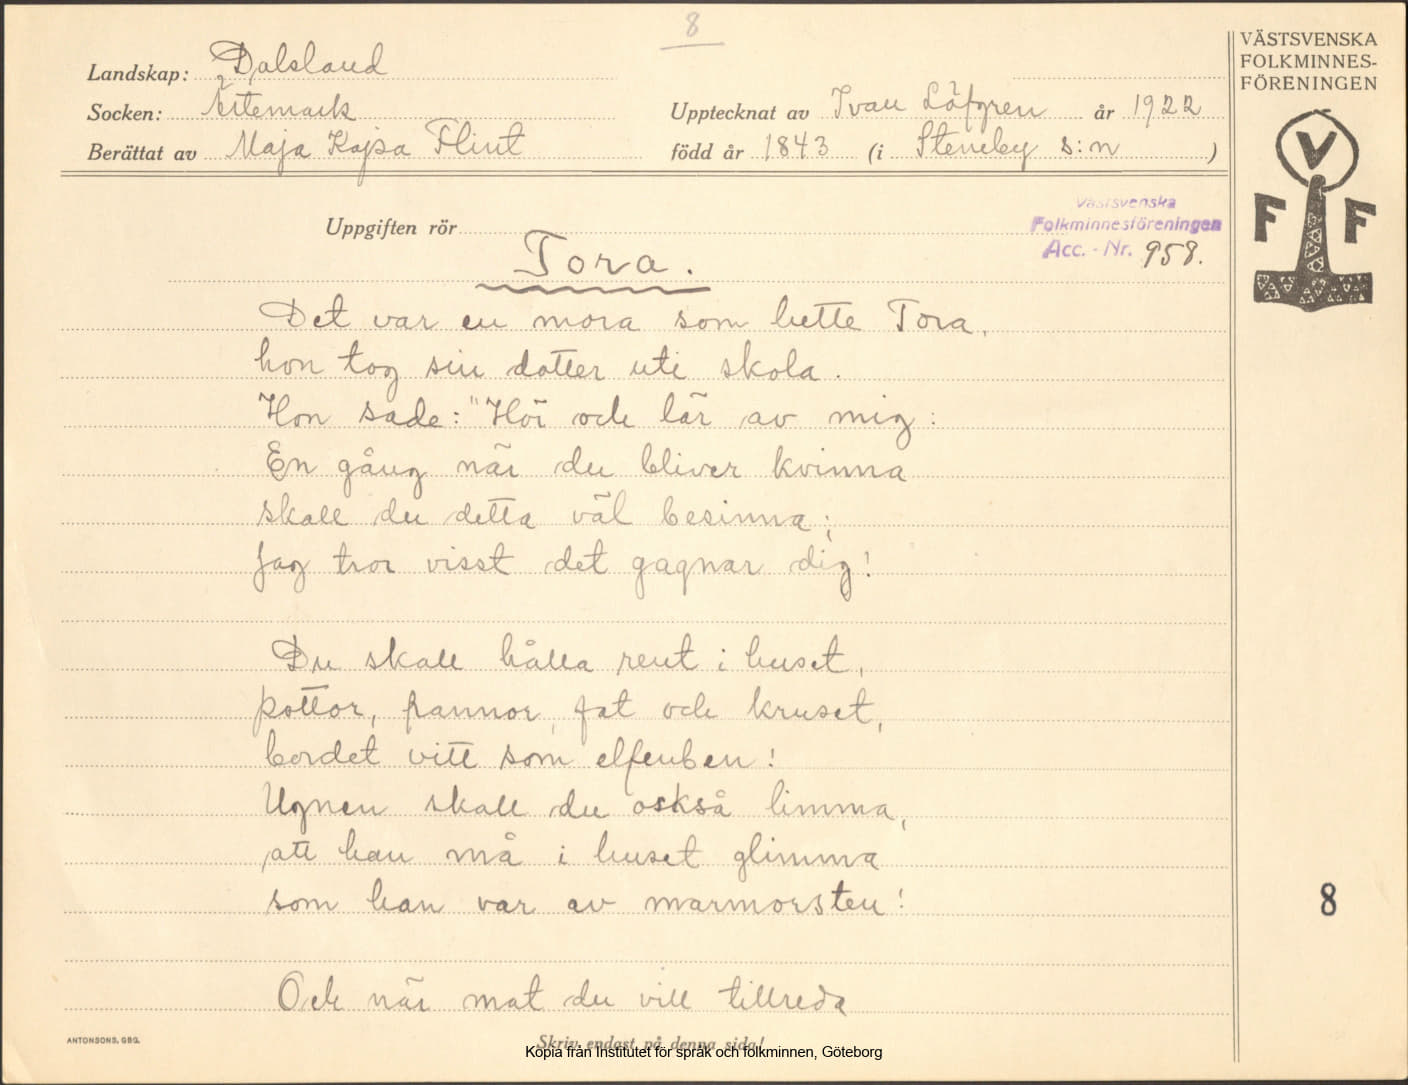 8
VÄSTSVENSKA
FOLKMINNES-
FÖRENINGEN
V
F F
Landskap: Dalsland
Socken: Ärtemark
Upptecknat av Ivan Löfgren år 1922
Berättat av Maja Kajsa Flint
född år 1843 (i Steneby s:n )
Västsvenska
Folkminnesföreningen
Acc. - Nr. 958.
Uppgiften rör
Tora.
Det var en mora som hette Tora,
hon tog sin dotter uti skola.
Hon sade: "Hör och lär av mig:
En gång när du bliver kvinna
skall du detta väl besinna;
Jag tror visst det gagnar dig!
Du skall hålla rent i huset,
pottor, pannor, fat och kruset,
bordet vitt som elfenben!
Ugnen skall du också limma,
att han må i huset glimma
som han var av marmorsten!
8
Och när mat du vill tillreda
ANTONSONS, GBG.
Skriv endast på denna sida!
Kopia från Institutet för språk och folkminnen, Göteborg